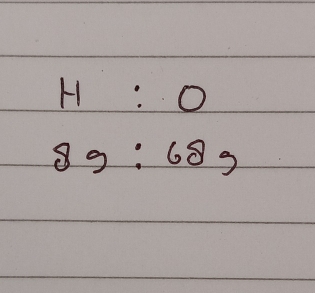 H : O
8 g : 68 g